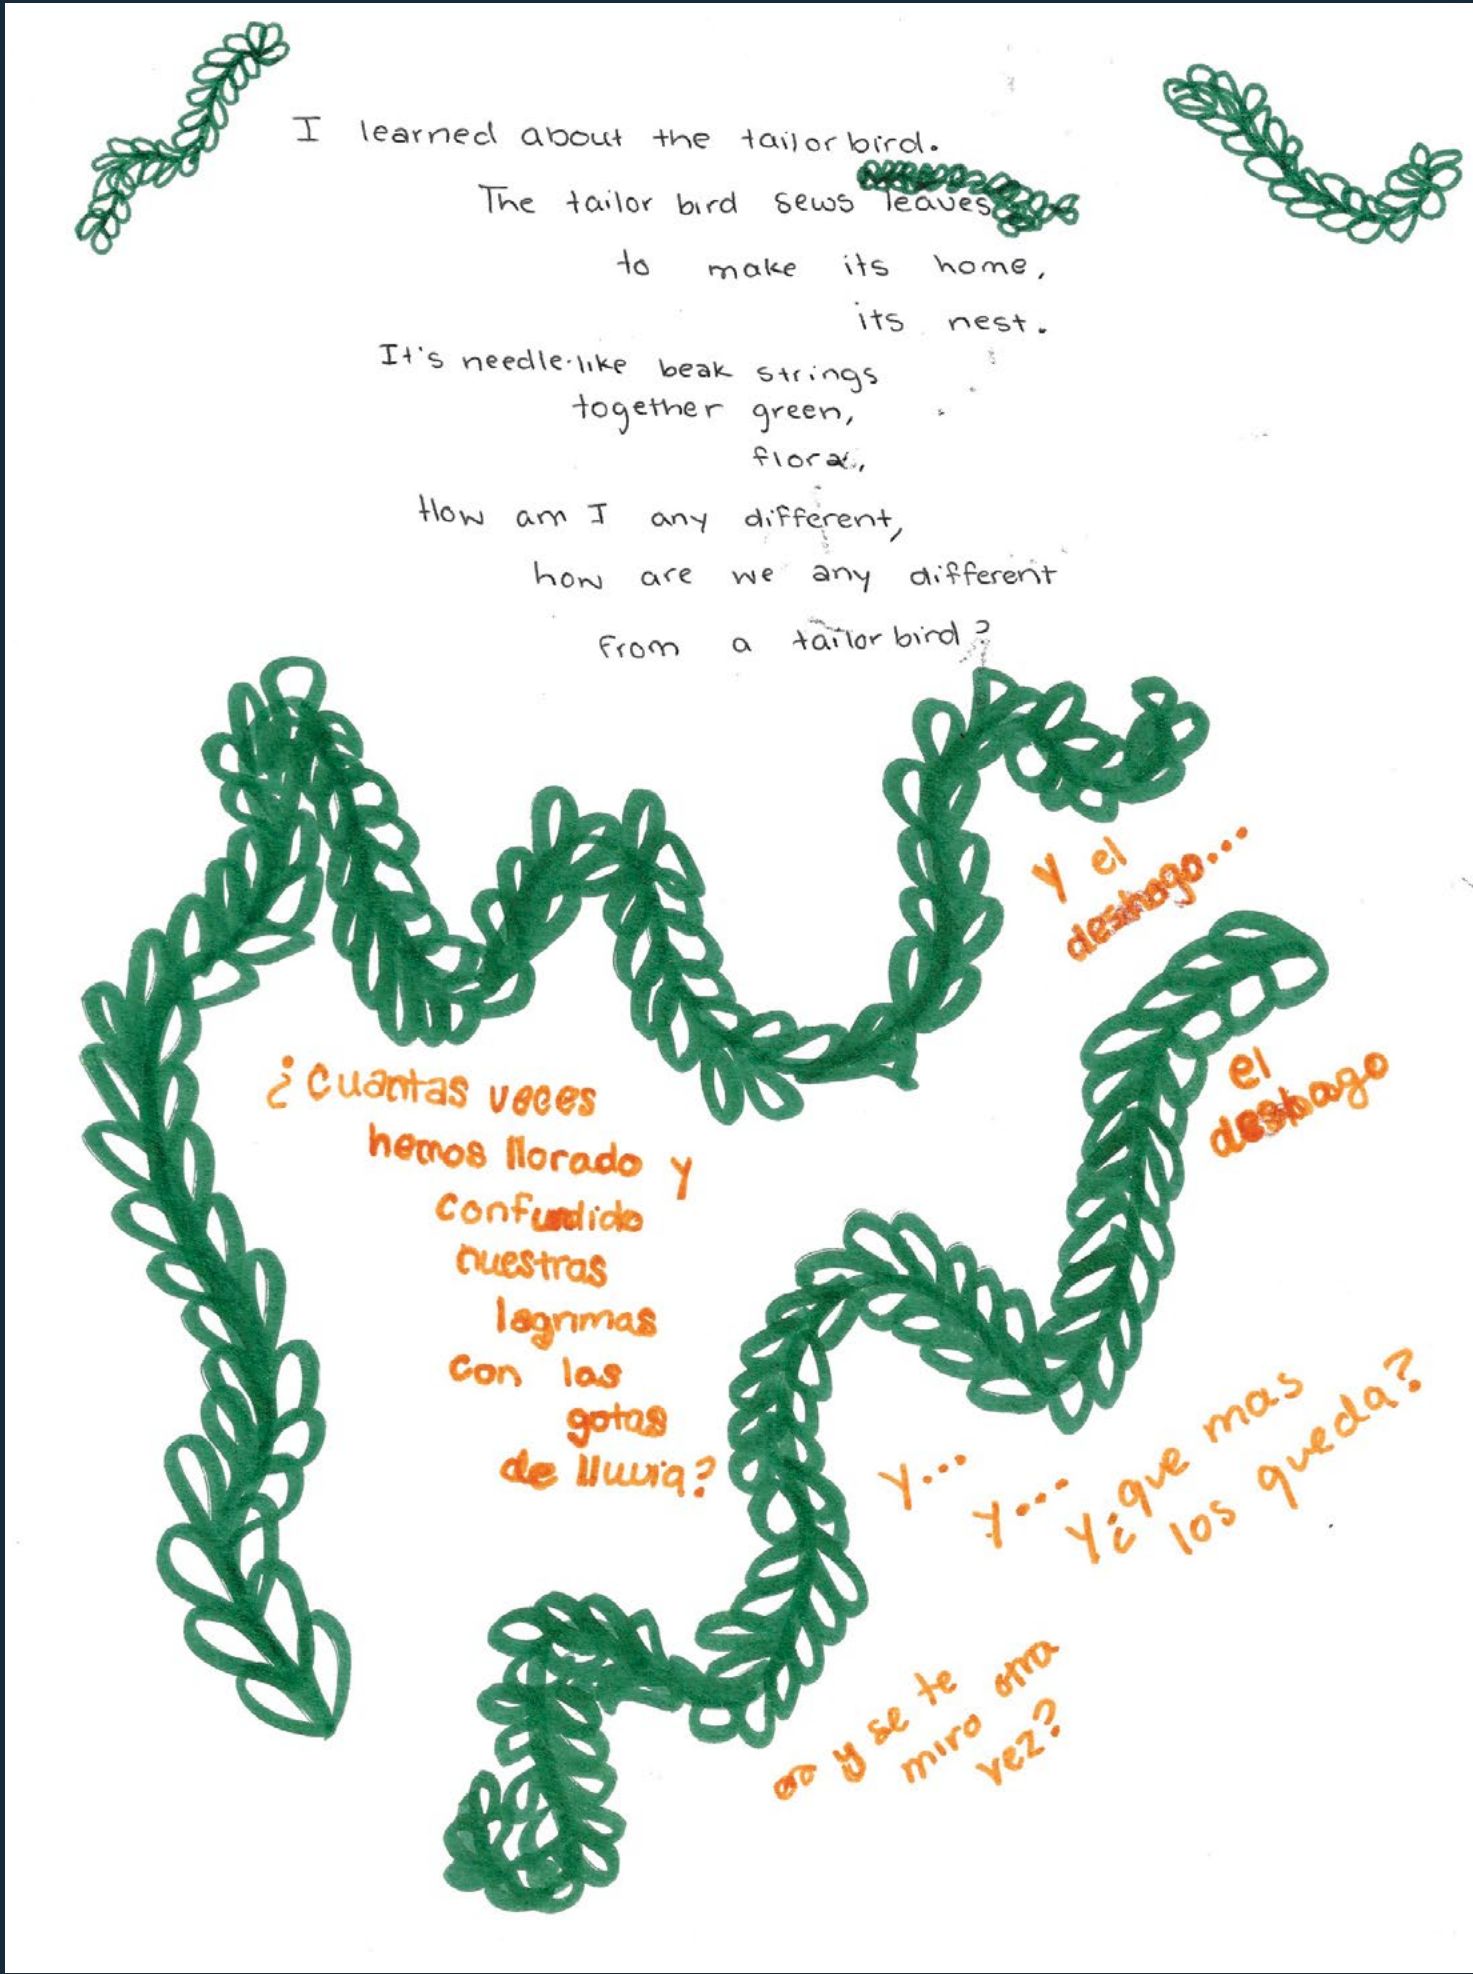 I learned about the tailor bird.
The tailor bird sews leaves
to make its home,
its nest.
It's needle-like beak strings
together green,
flora,
How am I any different,
how are we any different
from a tailor bird?
Y el
deshago...
el
deshago
¿Cuantas veces
hemos llorado y
confundido
nuestras
lagrimas
con las
gotas
de lluvia?
y...
y...
y ¿que mas
los queda?
y se te
miro otra
vez?